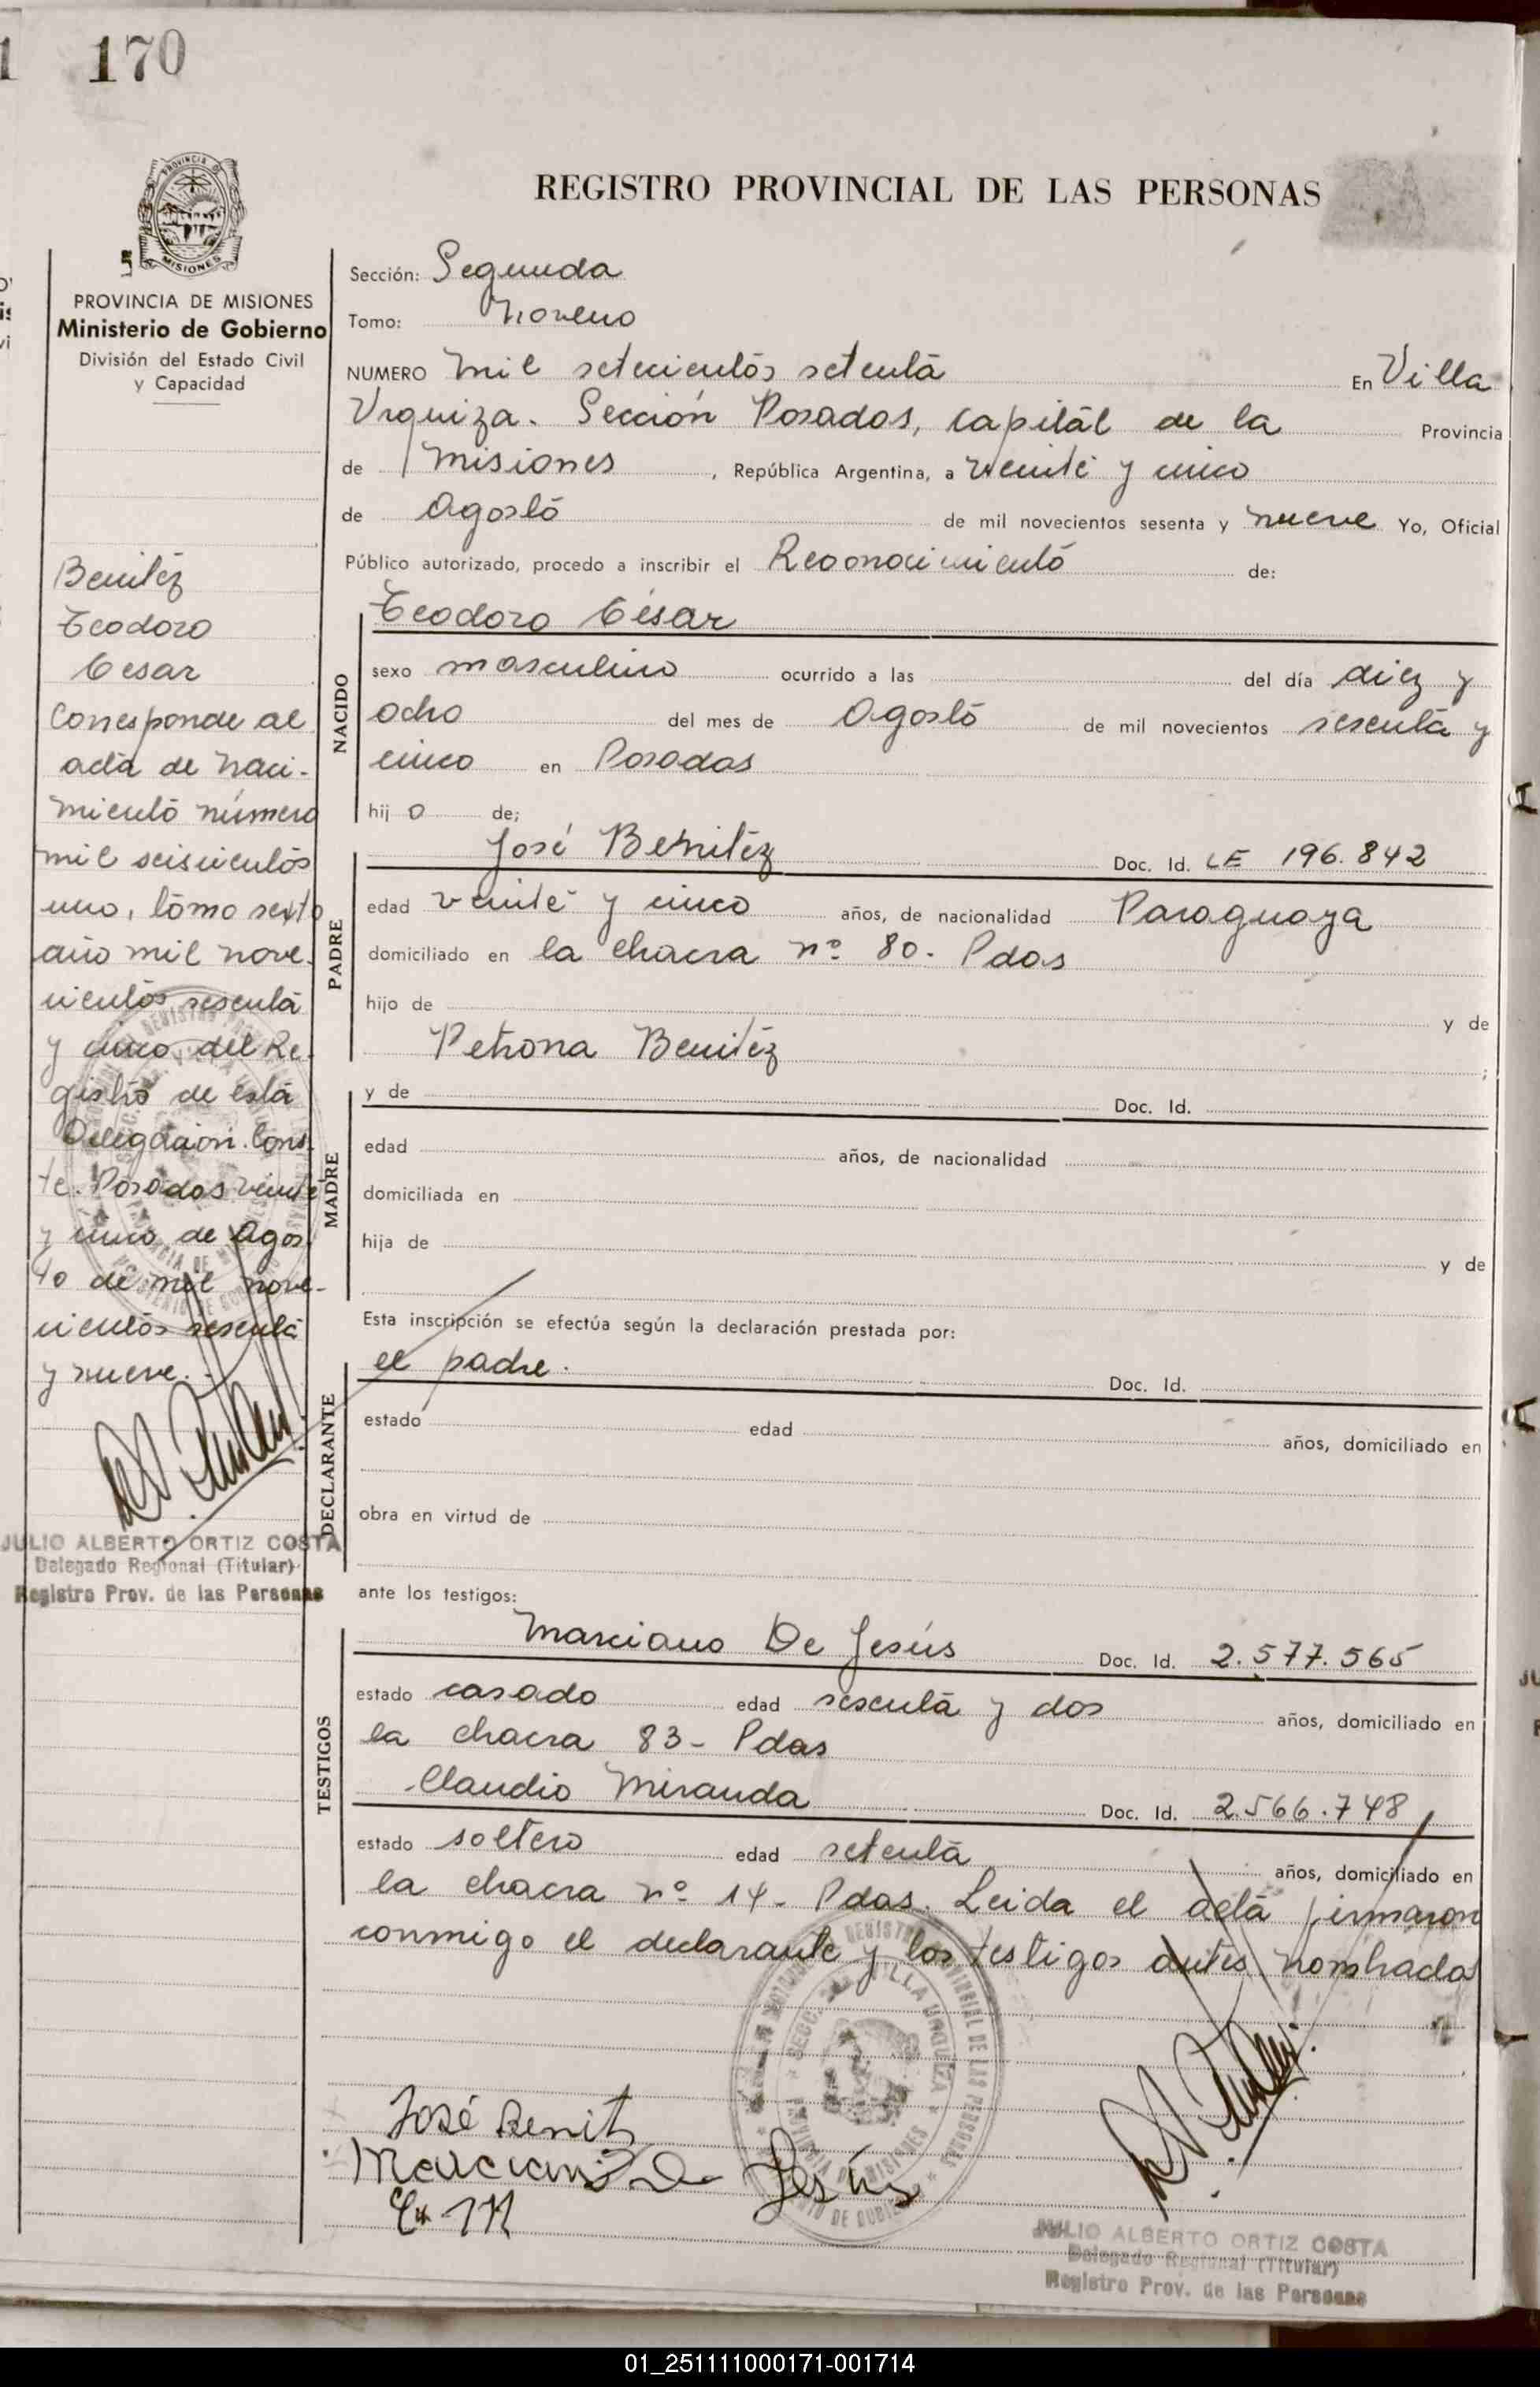 170
PROVINCIA DE MISIONES
Ministerio de Gobierno
División del Estado Civil
y Capacidad
REGISTRO PROVINCIAL DE LAS PERSONAS
Sección: Segunda
Tomo: Noveno
NUMERO Mil setecientos setenta En Villa
Urquiza. Sección Posadas, capital de la Provincia
de Misiones, República Argentina, a veinte y cinco
de Agosto de mil novecientos sesenta y nueve Yo, Oficial
Público autorizado, procedo a inscribir el Reconocimiento de:
NACIDO
Teodoro César
sexo masculino ocurrido a las del día diez y
ocho del mes de Agosto de mil novecientos sesenta y
cinco en Posadas
hij o de;
PADRE
José Benitez Doc. Id. LE 196.842
edad veinte y cinco años, de nacionalidad Paraguaya
domiciliado en la chacra nº 80. Pdas
hijo de y de
Petrona Benitez ;
MADRE
y de Doc. Id.
edad años, de nacionalidad
domiciliada en
hija de y de
Esta inscripción se efectúa según la declaración prestada por:
DECLARANTE
el padre. Doc. Id.
estado edad años, domiciliado en
obra en virtud de
ante los testigos:
TESTIGOS
Marciano De Jesús Doc. Id. 2.577.565
estado casado edad sesenta y dos años, domiciliado en
la chacra 83- Pdas
Claudio Miranda Doc. Id. 2.566.748
estado soltero edad setenta años, domiciliado en
la chacra nº 14- Pdas. Leida el acta firmaron
conmigo el declarante y los testigos antes nombrados
José Benit
Marciano De Jesús
JULIO ALBERTO ORTIZ COSTA
Delegado Regional (Titular)
Registro Prov. de las Personas
Benitez
Teodoro
Cesar
Corresponde al
acta de Naci-
miento número
mil seiscientos
uno, tomo sexto
año mil nove-
cientos sesenta
y cinco del Re-
gistro de esta
Delegación. Cons-
te. Posadas veinte
y cinco de Agos-
to de mil nove-
cientos sesenta
y nueve.
JULIO ALBERTO ORTIZ COSTA
Delegado Regional (Titular)
Registro Prov. de las Personas
01_251111000171-001714